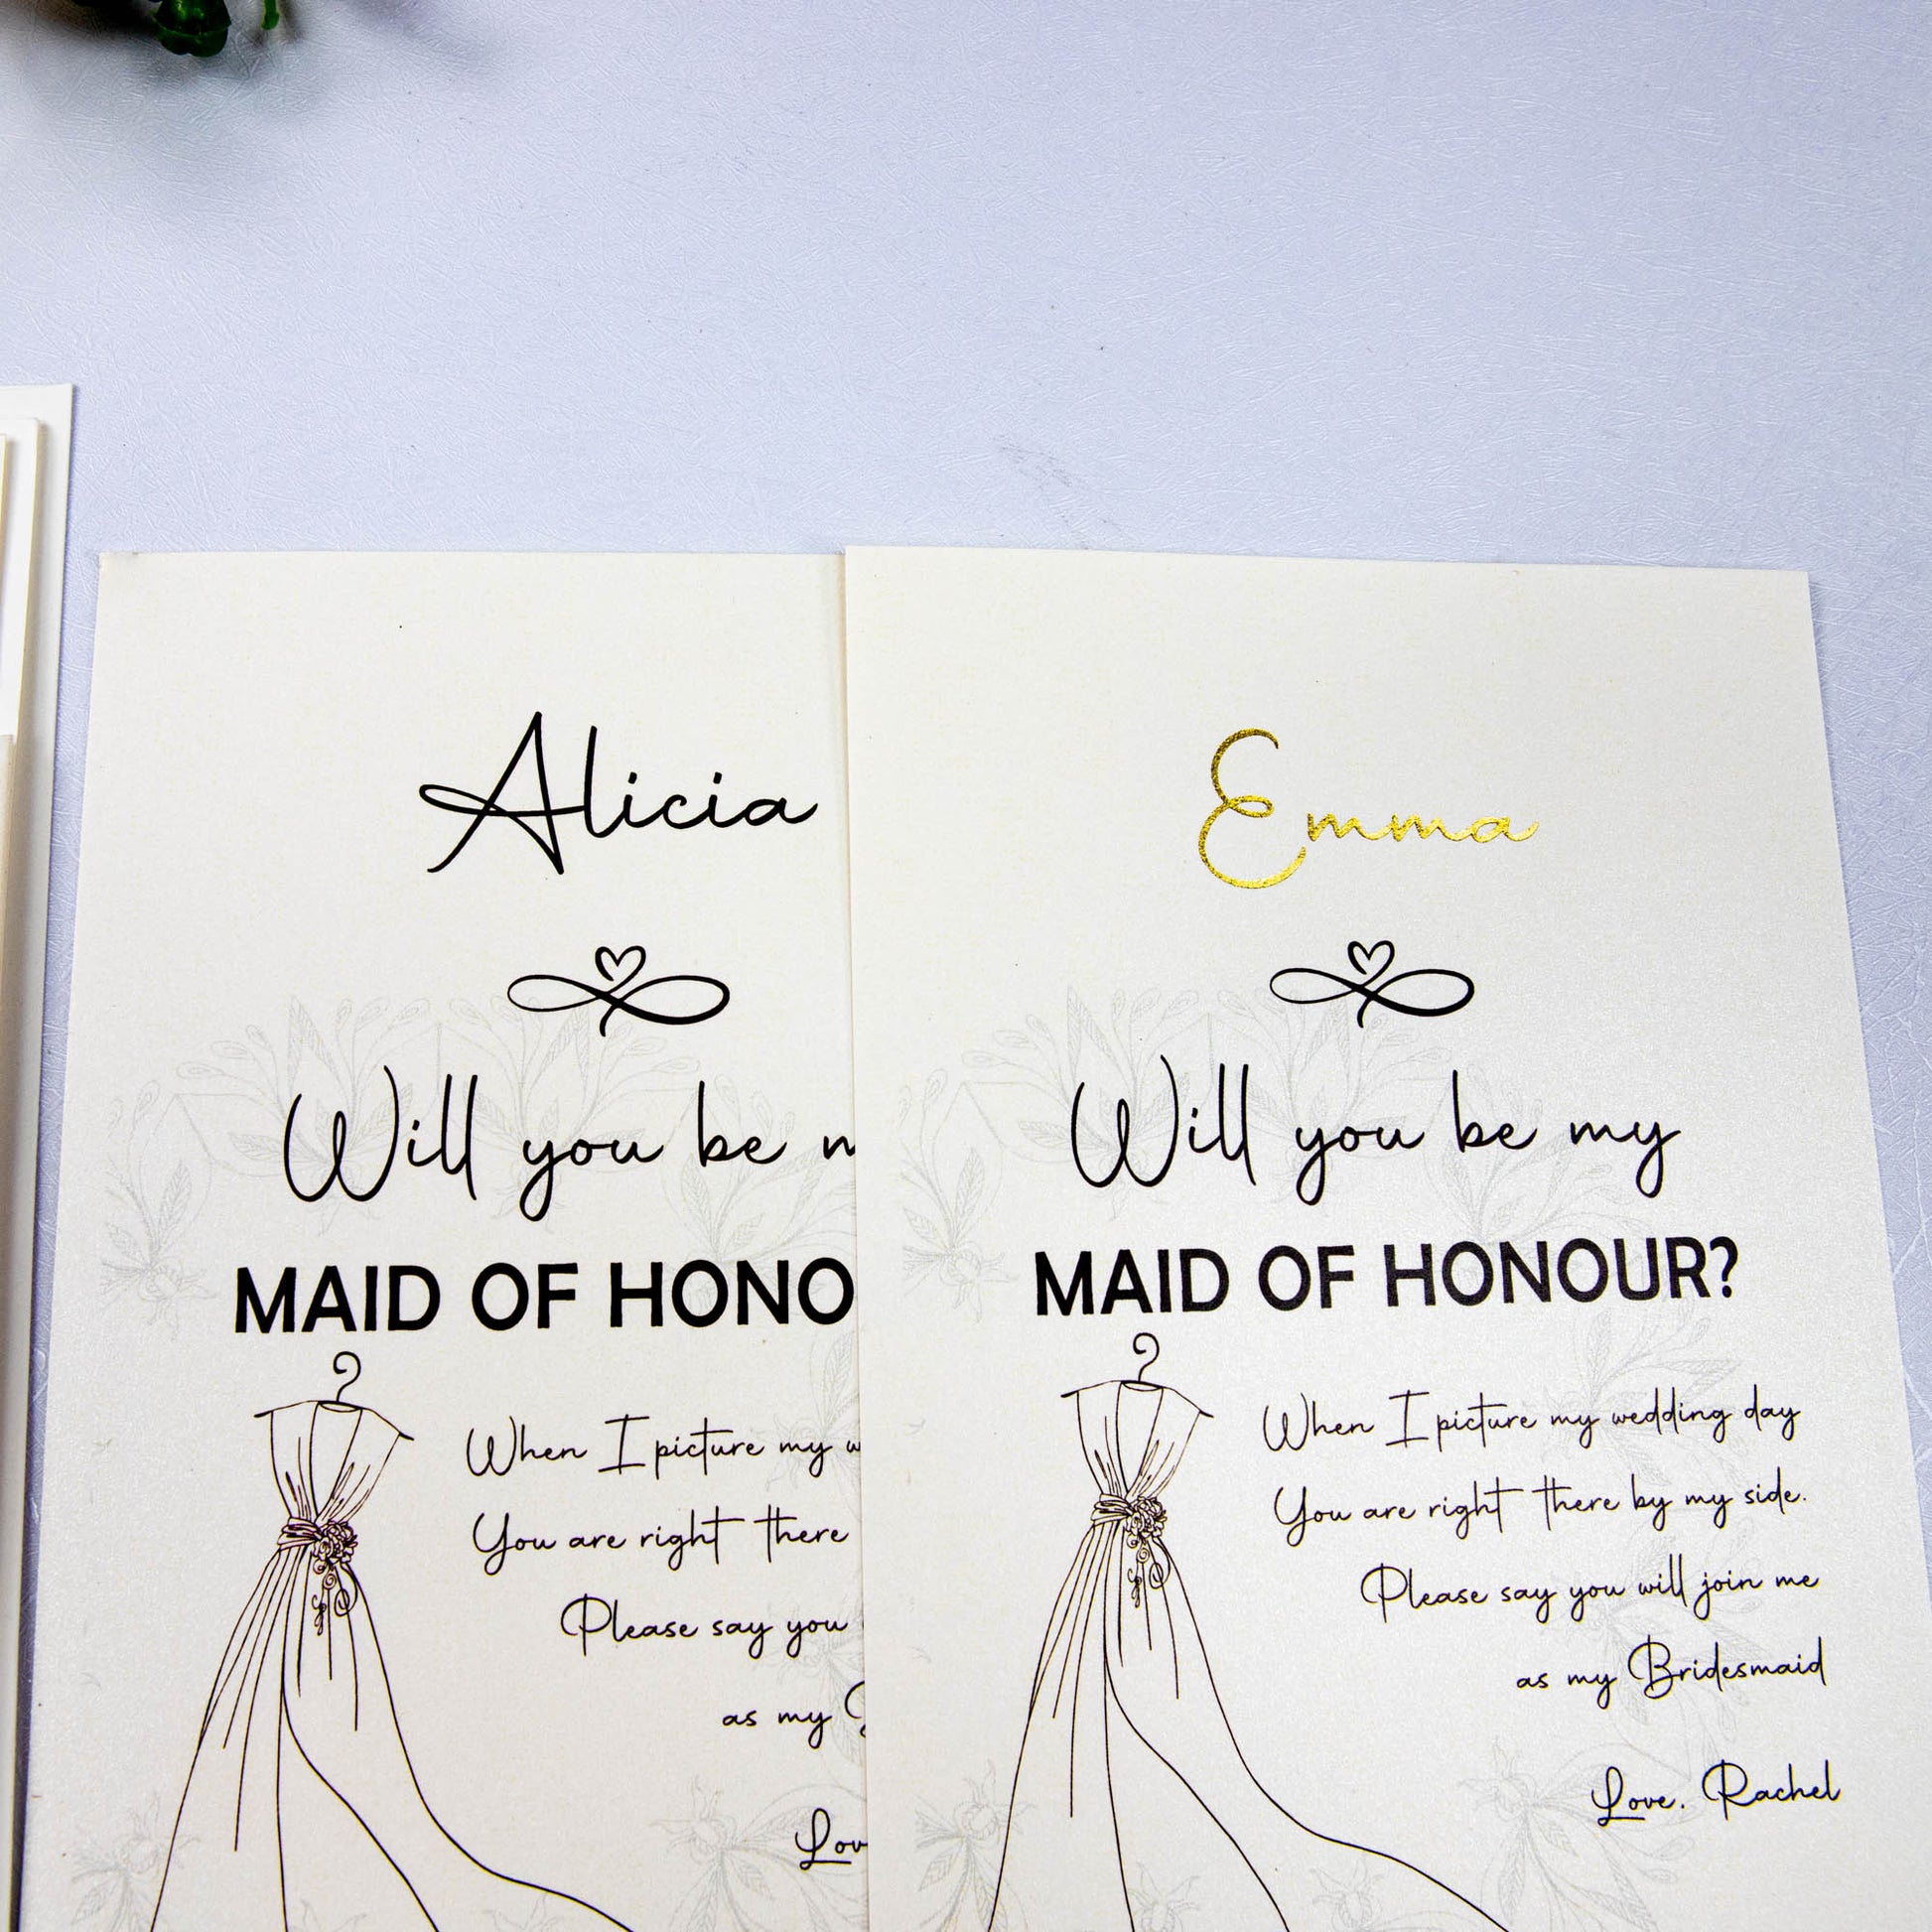 Alicia
Will you be m
MAID OF HONO
When I picture my w
You are right there
Please say you
as my
Lov
Emma
Will you be my
MAID OF HONOUR?
When I picture my wedding day
You are right there by my side.
Please say you will join me
as my Bridesmaid
Love, Rachel